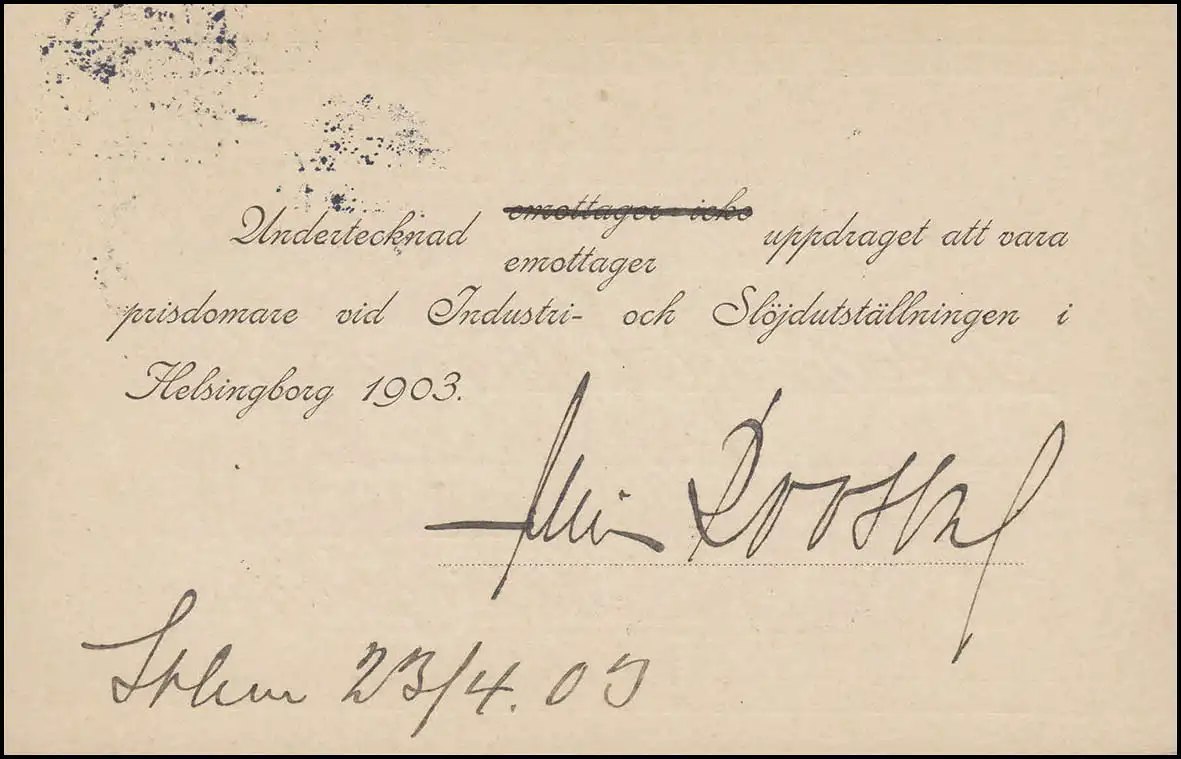 emottager icke
Undertecknad uppdraget att vara
emottager
prisdomare vid Industri- och Slöjdutställningen i
Helsingborg 1903.
Sthlm 23/4. 03